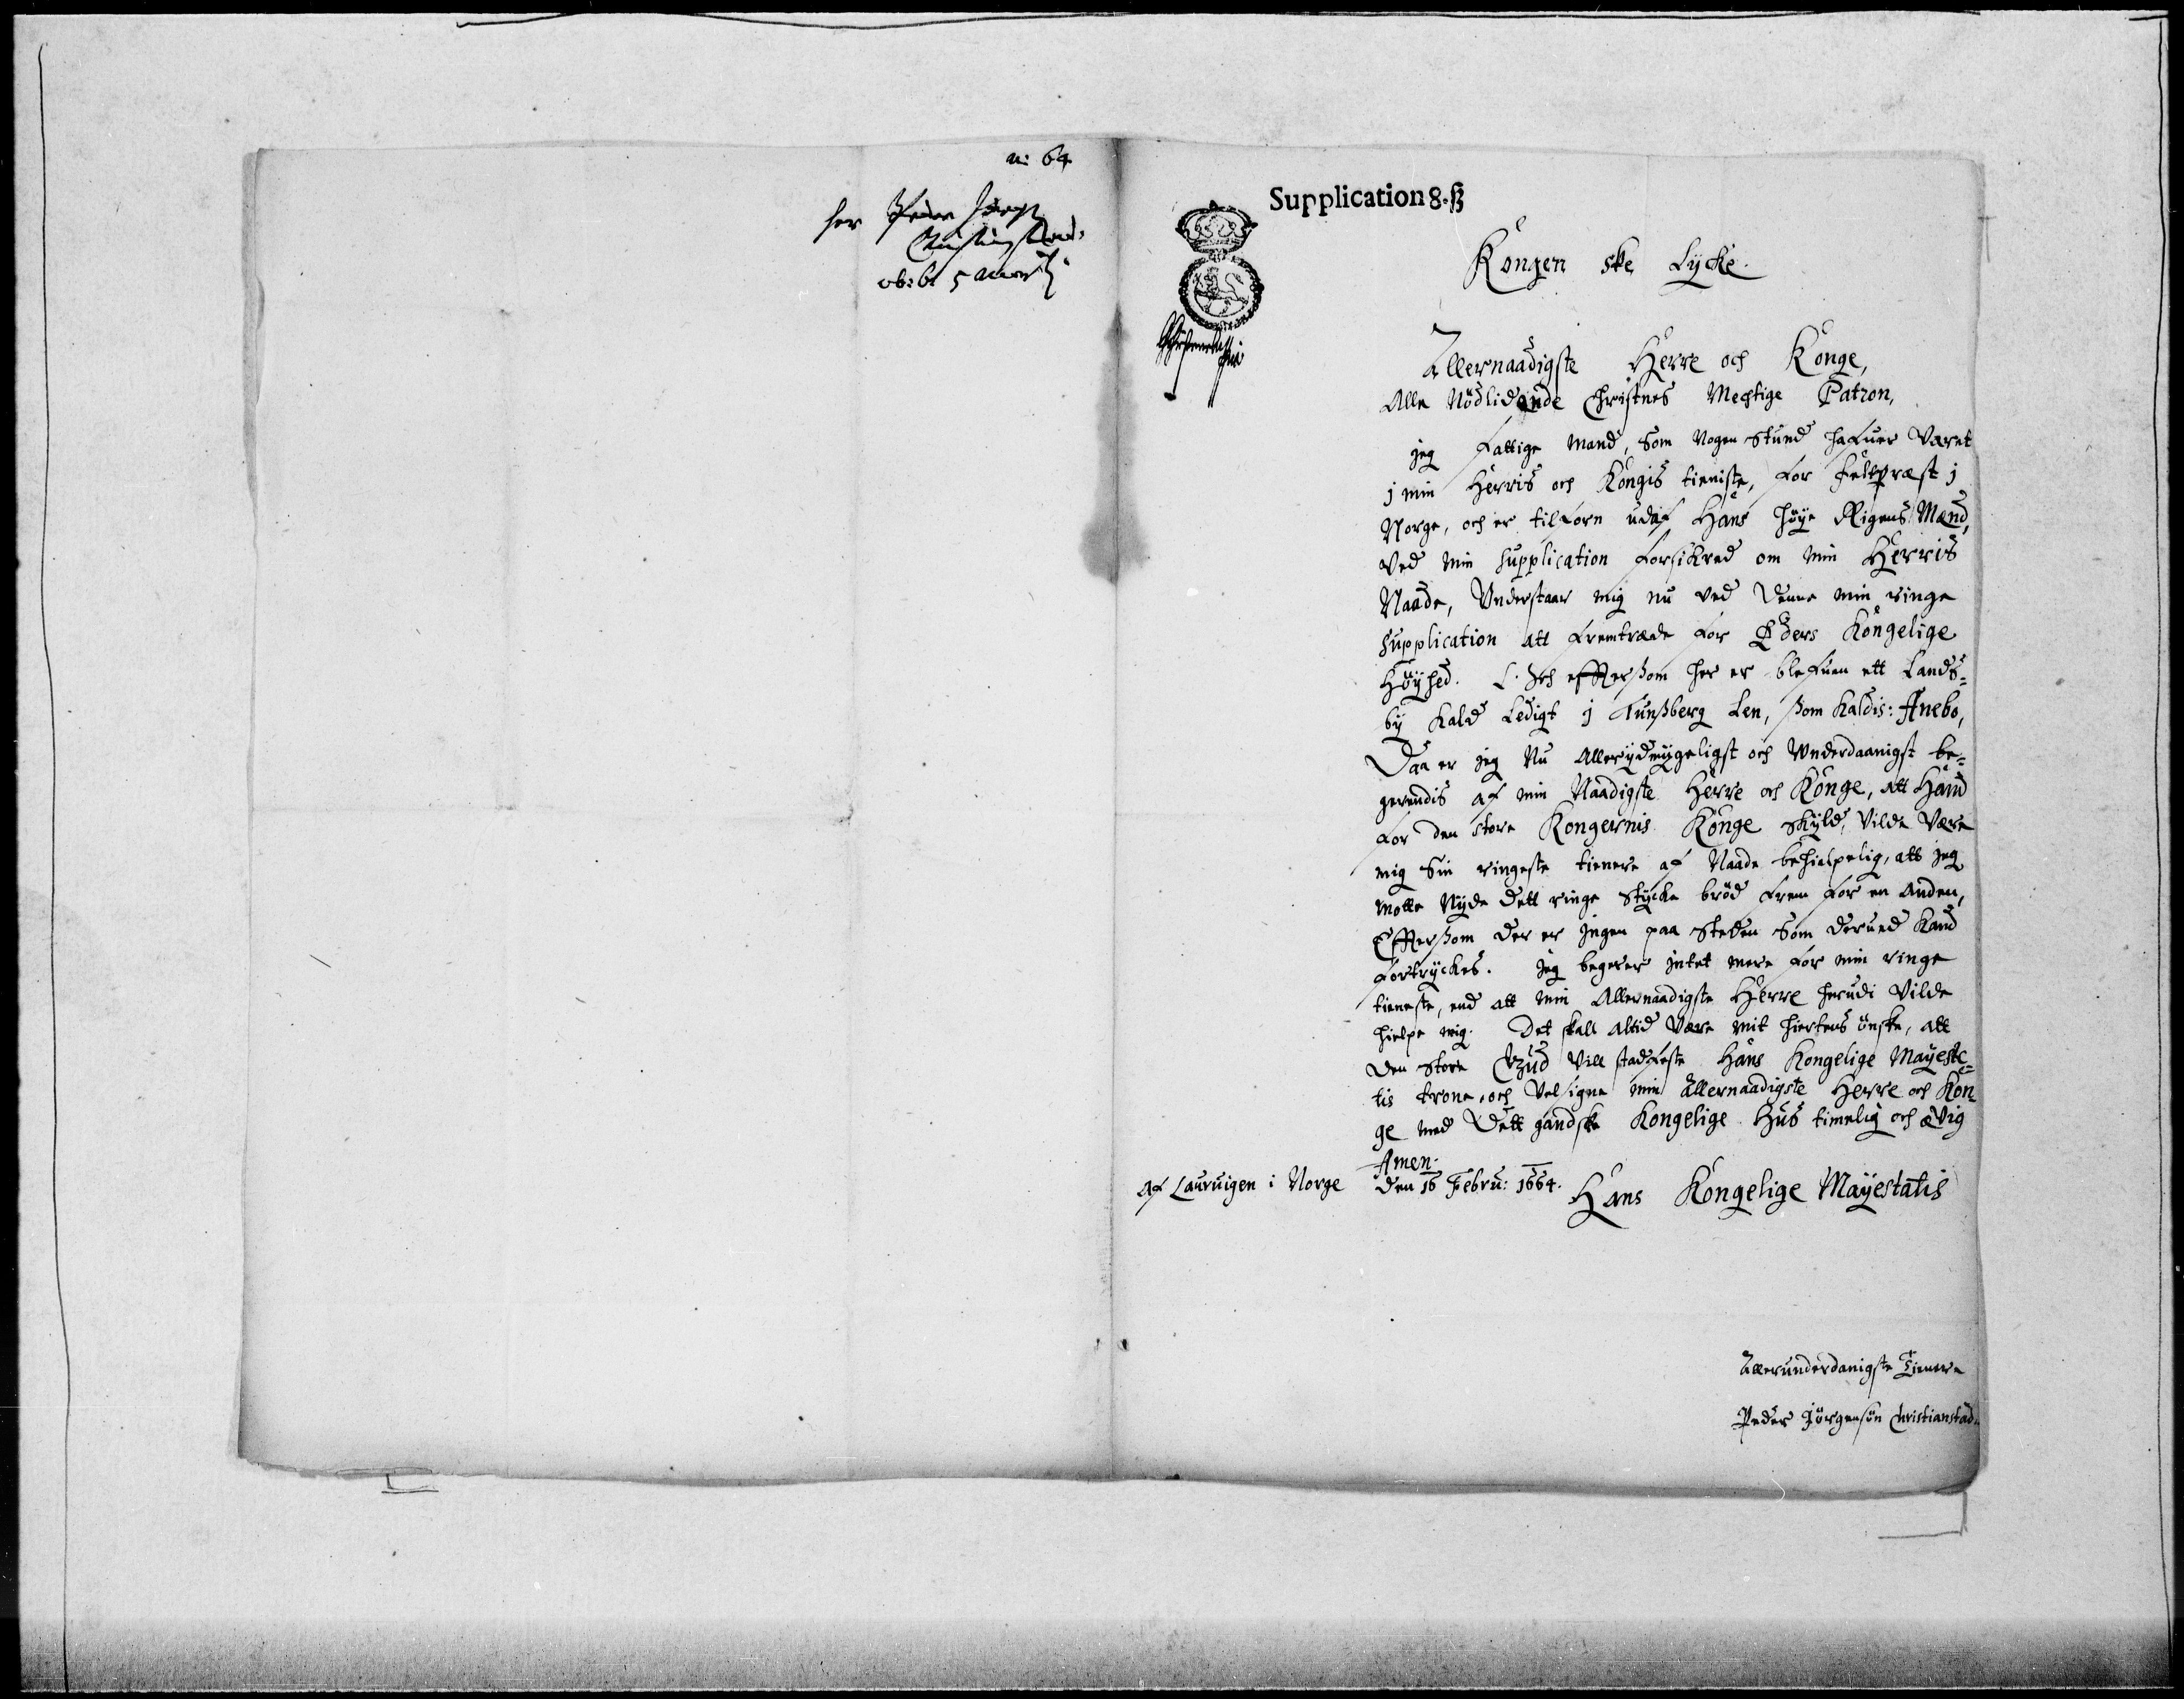 n: 64
her Peder Jørgs
Christianstad:
ob: 6t 5 Martij
Supplication 8. ß
Kongen ske Lycke.
Allernaadigste Herre och Konge,
Alle Nödlidende Christnes Mechtige Patron,
jeg fattige Mand, Som Nogen Stund hafuer Været
j min Herris och Kongis tieniste, for feltpræst j
Norge, och er tilforn udaf Hans höye Rigens Mænd,
Ved min Supplication forsikred om min Herris
Naade, Understaar mig nu ved denne min ringe
Supplication att fremtræde for Eders Kongelige
Höyhed. Och effterßom her er blefuen ett Lands¬
by Kald Ledigt j Tunßberg Len, ßom Kaldis: Anebo,
Daa er jeg Nu Allerydmygeligst och Underdaanigst be¬
gerendis af min Naadigste Herre och Konge, att Hand
for den store Kongernis Konge Skyld, Vilde Være
mig Sin ringeste tienere af Naade behielpelig, att jeg
motte Nyde dett ringe Stycke bröd frem for en Anden,
Effterßom der er Jngen paa Steden Som derued Kand
fortryckes. Jeg begerer jntet mere for min ringe
tieneste, end att min Allernaadigste Herre herudi Vilde
hielpe mig. Det skall altid Være mit hiertens önske, att
den Store Gud Vill stadfeste Hans Kongelige Mayeste¬
tis trone, och Velsigne min Allernaadigste Herre och Kon
ge med Dett gandske Kongelige Hus timelig och ævig
Amen.
Af Lauruigen i Norge den 16 Febru: 1664.
Hans Kongelige Mayestatis
Allerunderdanigste Tienere
Peder Jörgensön Christianstad.